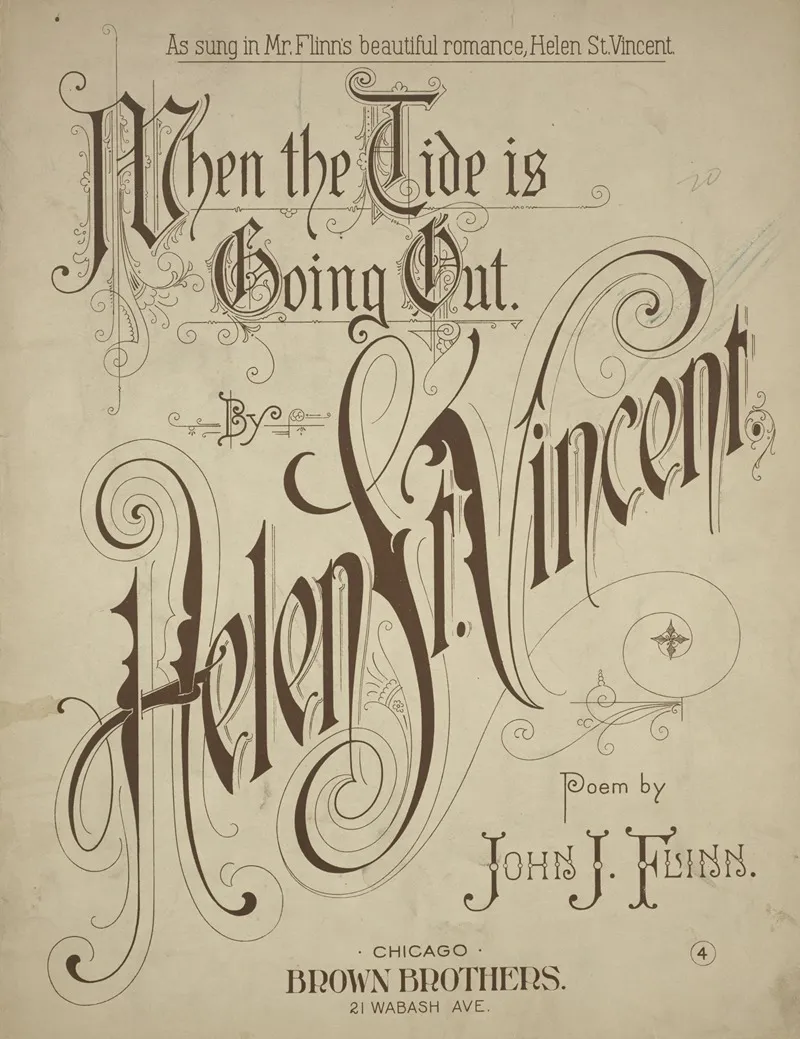 As sung in Mr. Flinn's beautiful romance, Helen St. Vincent.
When the Tide is
Going Out.
20
By
Helen St. Vincent.
Poem by
John J. Flinn.
· CHICAGO ·
BROWN BROTHERS.
21 WABASH AVE.
4